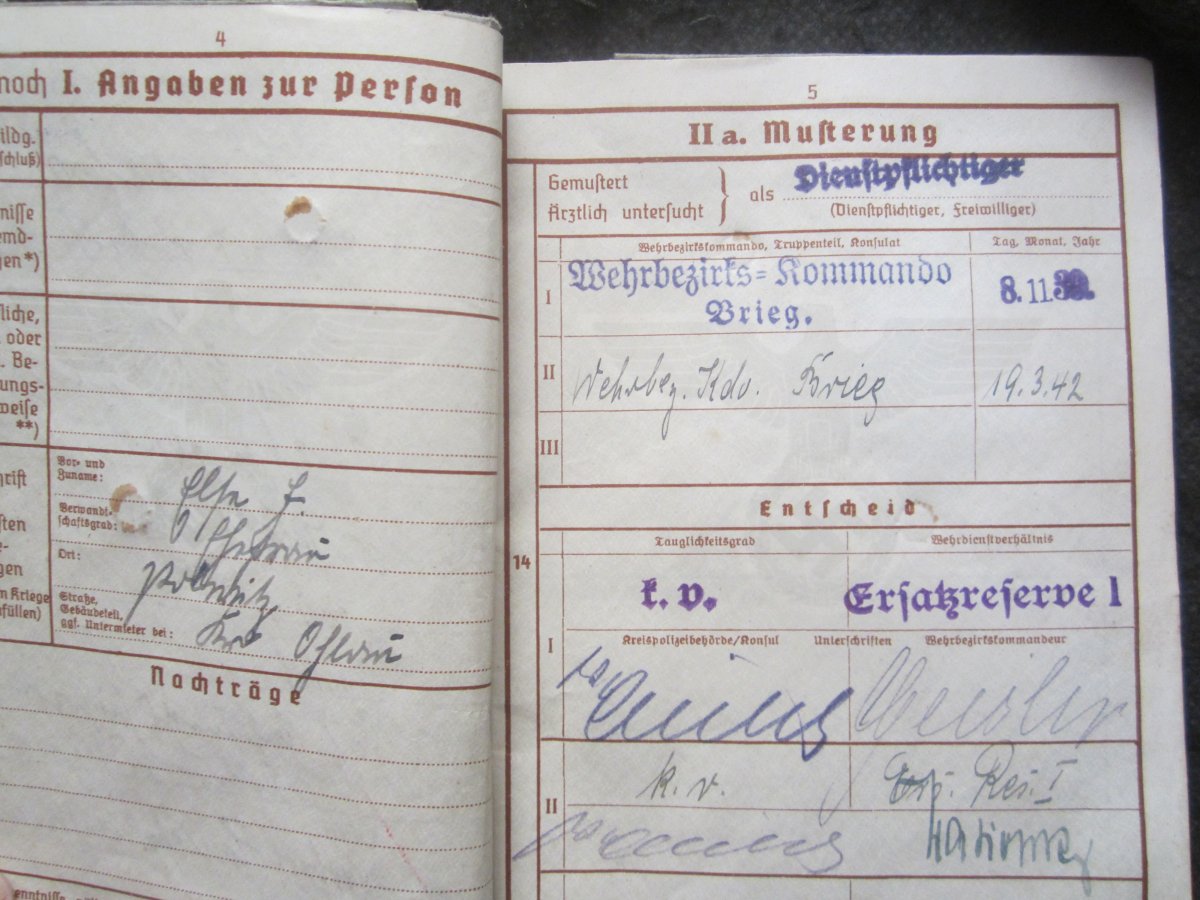 4
noch I. Angaben zur Person
ildg.
schluß)
nisse
emd-
gen*)
liche,
oder
Be-
ungs-
weise
**)
hrift
sten
e-
gen
m Kriege
füllen)
Vor- und
Zuname:
Else F.
Verwandt-
schaftsgrad:
Ehefrau
Ort:
Straße,
Gebäudeteil,
ggf. Untermieter bei:
Krs Ohlau
Nachträge
enntnisse
5
II a. Musterung
Gemustert
Ärztlich untersucht
als
Dienstpflichtiger
(Dienstpflichtiger, Freiwilliger)
Wehrbezirkskommando, Truppenteil, Konsulat
Tag, Monat, Jahr
I
Wehrbezirks=Kommando
Brieg.
8.11.39.
II
Wehrbez. Kdo. Brieg
19.3.42
III
Entscheid
Tauglichkeitsgrad
Wehrdienstverhältnis
14
k.v.
Ersatzreserve I
I
Kreispolizeibehörde/Konsul
Unterschriften
Wehrbezirkskommandeur
II
k.v.
Ers. Res. I